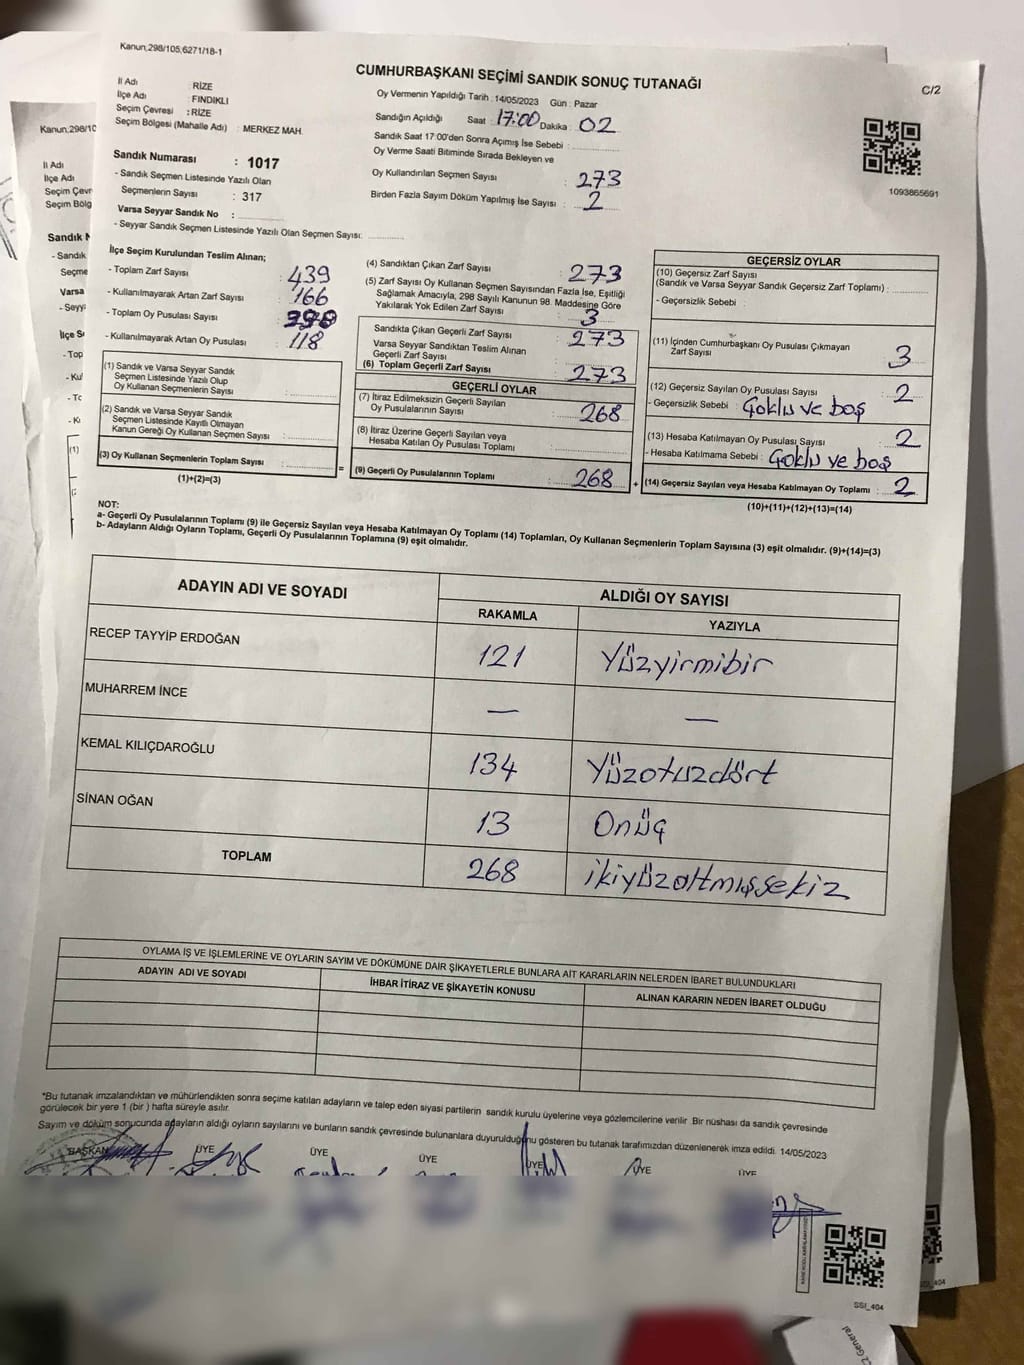 Kanun;298/105,6271/18-1
CUMHURBAŞKANI SEÇİMİ SANDIK SONUÇ TUTANAĞI
C/2
İl Adı : RİZE
İlçe Adı : FINDIKLI
Seçim Çevresi : RİZE
Seçim Bölgesi (Mahalle Adı) : MERKEZ MAH.
Oy Vermenin Yapıldığı Tarih : 14/05/2023 Gün : Pazar
Sandığın Açıldığı Saat : 17:00 Dakika : 02
Sandık Saat 17:00'den Sonra Açımış İse Sebebi :
Oy Verme Saati Bitiminde Sırada Bekleyen ve
Oy Kullandırılan Seçmen Sayısı : 273
Birden Fazla Sayım Döküm Yapılmış İse Sayısı : 2
1093865691
Sandık Numarası : 1017
- Sandık Seçmen Listesinde Yazılı Olan
Seçmenlerin Sayısı : 317
Varsa Seyyar Sandık No :
- Seyyar Sandık Seçmen Listesinde Yazılı Olan Seçmen Sayısı:
İlçe Seçim Kurulundan Teslim Alınan;
- Toplam Zarf Sayısı : 439
- Kullanılmayarak Artan Zarf Sayısı : 166
- Toplam Oy Pusulası Sayısı :
- Kullanılmayarak Artan Oy Pusulası : 118
(1) Sandık ve Varsa Seyyar Sandık
Seçmen Listesinde Yazılı Olup
Oy Kullanan Seçmenlerin Sayısı :
(2) Sandık ve Varsa Seyyar Sandık
Seçmen Listesinde Kayıtlı Olmayan
Kanun Gereği Oy Kullanan Seçmen Sayısı :
(3) Oy Kullanan Seçmenlerin Toplam Sayısı :
(1)+(2)=(3)
=
(4) Sandıktan Çıkan Zarf Sayısı : 273
(5) Zarf Sayısı Oy Kullanan Seçmen Sayısından Fazla İse, Eşitliği
Sağlamak Amacıyla, 298 Sayılı Kanunun 98. Maddesine Göre
Yakılarak Yok Edilen Zarf Sayısı : 3
Sandıkta Çıkan Geçerli Zarf Sayısı : 273
Varsa Seyyar Sandıktan Teslim Alınan
Geçerli Zarf Sayısı :
(6) Toplam Geçerli Zarf Sayısı : 273
GEÇERLİ OYLAR
(7) İtiraz Edilmeksizin Geçerli Sayılan
Oy Pusulalarının Sayısı : 268
(8) İtiraz Üzerine Geçerli Sayılan veya
Hesaba Katılan Oy Pusulası Toplamı :
(9) Geçerli Oy Pusulalarının Toplamı : 268
+
GEÇERSİZ OYLAR
(10) Geçersiz Zarf Sayısı
(Sandık ve Varsa Seyyar Sandık Geçersiz Zarf Toplamı) :
- Geçersizlik Sebebi :
(11) İçinden Cumhurbaşkanı Oy Pusulası Çıkmayan
Zarf Sayısı : 3
(12) Geçersiz Sayılan Oy Pusulası Sayısı : 2
- Geçersizlik Sebebi : Çoklu ve boş
(13) Hesaba Katılmayan Oy Pusulası Sayısı : 2
- Hesaba Katılmama Sebebi : Çoklu ve boş
(14) Geçersiz Sayılan veya Hesaba Katılmayan Oy Toplamı : 2
(10)+(11)+(12)+(13)=(14)
NOT:
a- Geçerli Oy Pusulalarının Toplamı (9) ile Geçersiz Sayılan veya Hesaba Katılmayan Oy Toplamı (14) Toplamları, Oy Kullanan Seçmenlerin Toplam Sayısına (3) eşit olmalıdır. (9)+(14)=(3)
b- Adayların Aldığı Oyların Toplamı, Geçerli Oy Pusulalarının Toplamına (9) eşit olmalıdır.
ADAYIN ADI VE SOYADI
ALDIĞI OY SAYISI
RAKAMLA YAZIYLA
RECEP TAYYİP ERDOĞAN 121 Yüzyirmibir
MUHARREM İNCE — —
KEMAL KILIÇDAROĞLU 134 Yüzotuzdört
SİNAN OĞAN 13 Onüç
TOPLAM 268 ikiyüzaltmışsekiz
OYLAMA İŞ VE İŞLEMLERİNE VE OYLARIN SAYIM VE DÖKÜMÜNE DAİR ŞİKAYETLERLE BUNLARA AİT KARARLARIN NELERDEN İBARET BULUNDUKLARI
ADAYIN ADI VE SOYADI
İHBAR İTİRAZ VE ŞİKAYETİN KONUSU
ALINAN KARARIN NEDEN İBARET OLDUĞU
*Bu tutanak imzalandıktan ve mühürlendikten sonra seçime katılan adayların ve talep eden siyasi partilerin sandık kurulu üyelerine veya gözlemcilerine verilir. Bir nüshası da sandık çevresinde
görülecek bir yere 1 (bir ) hafta süreyle asılır.
Sayım ve döküm sonucunda adayların aldığı oyların sayılarını ve bunların sandık çevresinde bulunanlara duyurulduğunu gösteren bu tutanak tarafımızdan düzenlenerek imza edildi. 14/05/2023
BAŞKAN ÜYE ÜYE ÜYE ÜYE ÜYE ÜYE
SSI_404
Kanun;298/10
İl Adı
İlçe Adı
Seçim Çevr
Seçim Bölg
Sandık N
- Sandık
Seçme
Varsa
- Seyy
İlçe S
- Top
- Kul
(1)
2 General